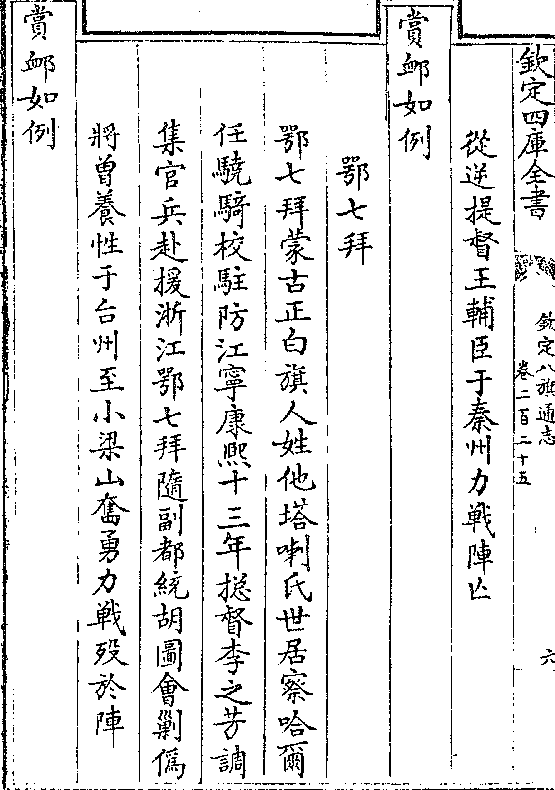 欽定四庫全書
欽定八旗通志
卷二百二十五
六
從逆提督王輔臣于秦州力戰陣亡
賞䘏如例
鄂七拜
鄂七拜蒙古正白旗人姓他塔喇氏世居察哈爾
任驍騎校駐防江寧康熙十三年捴督李之芳調
集官兵赴援浙江鄂七拜隨副都統胡圖會剿僞
將曽養性于台州至小梁山奮勇力戰殁於陣
賞䘏如例